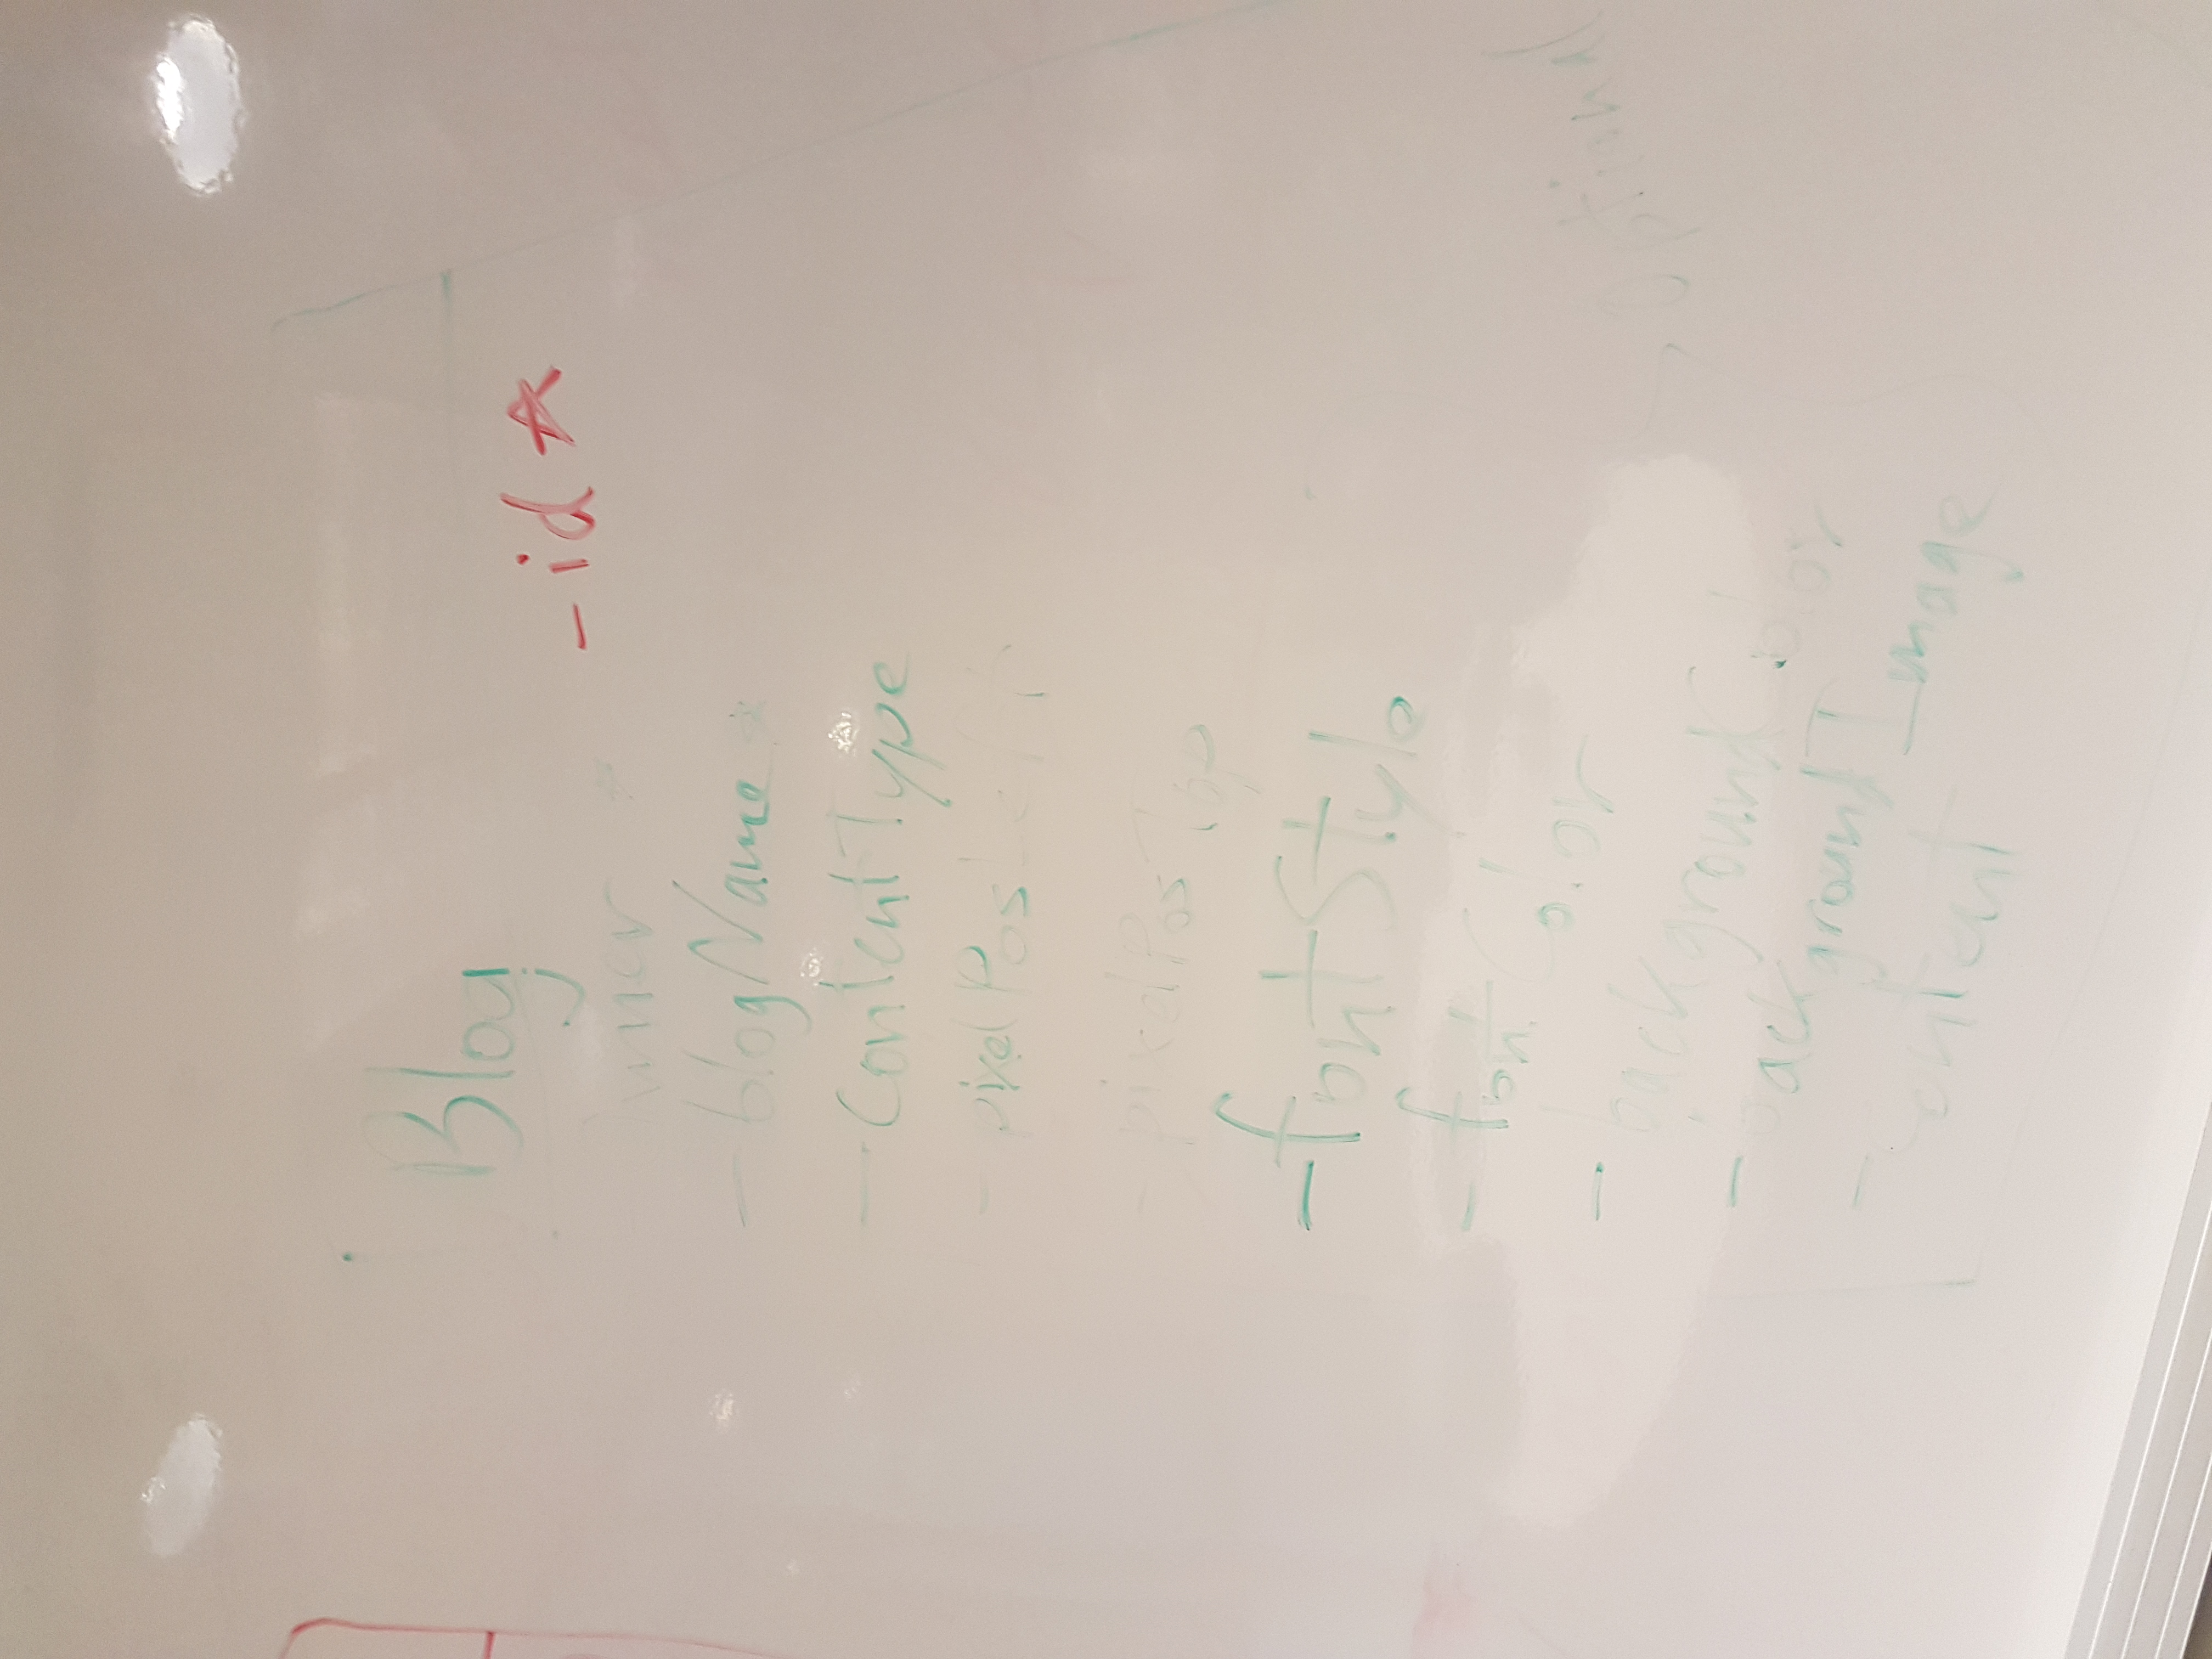 Blog
- id *
Owner *
- blogName *
- ContentType
- pixelPosLeft
- pixelPosTop
- fontStyle
- fontColor
- backgroundColor
Optional
- backgroundImage
- content